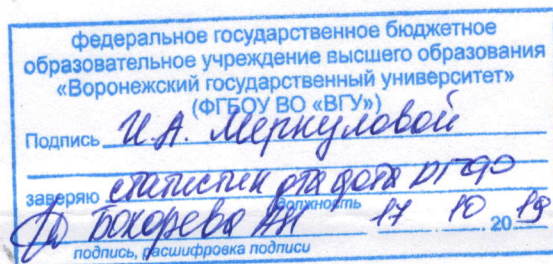 федеральное государственное бюджетное
образовательное учреждение высшего образования
«Воронежский государственный университет»
(ФГБОУ ВО «ВГУ»)
Подпись И.А. Меркуловой
заверяю статистик
должность
17 10 2019
подпись, расшифровка подписи